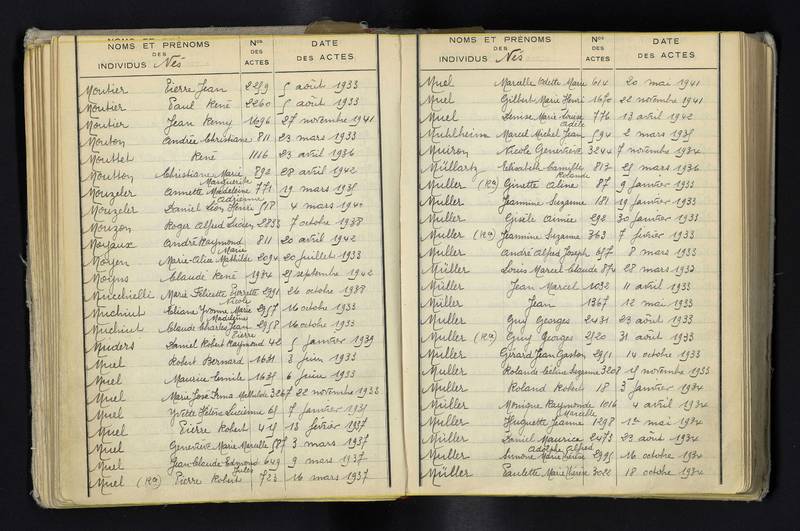 NOMS ET PRÉNOMS
DES
INDIVIDUS Nés
Nos
DES
ACTES
DATE
DES ACTES
Moutier Pierre Jean 2259 5 août 1933
Moutier Paul René 2260 5 août 1933
Moutier Jean Remy 1696 27 novembre 1941
Mouton Andrée Christiane 811 23 mars 1933
Mouttet René 1116 23 avril 1936
Moutton Christiane Marie 892 28 avril 1942
Marguerite
Mouzeler Annette Madeleine 771 19 mars 1935
Adrienne
Mouzeler Daniel Léon Henri 518 4 mars 1940
Mouzon Roger Alfred Lucien 2833 7 octobre 1938
Moyaux André Raymond 811 20 avril 1942
Marie
Moyen Marie-Alia Mathilde 2094 20 juillet 1933
Moyns Claude René 1934 25 septembre 1942
Mucchielli Marie Félicette Pierrette 2991 26 octobre 1938
Nicole
Muchint Eliana Yvonne Marie 2957 16 octobre 1933
Madeleine
Muchint Claude Charles Jean 2958 16 octobre 1933
Pierre
Muders Daniel Robert Raymond 42 5 janvier 1939
Muel Robert Bernard 1631 3 juin 1933
Muel Maurice Emile 1635 6 juin 1933
Muel Marie José Irma Mathilde 3267 22 novembre 1933
Muel Yvette Hélène Lucienne 65 7 janvier 1935
Muel Pierre Robert 415 13 février 1937
Muel Geneviève Marie Marcelle 587 3 mars 1937
Muel Jean Claude Edmond 649 9 mars 1937
Jules
Muel (Ron) Pierre Robert 723 16 mars 1937
NOMS ET PRÉNOMS
DES
INDIVIDUS Nés
Nos
DES
ACTES
DATE
DES ACTES
Muel Marcelle Odette Marie 614 20 mai 1941
Muel Gilbert Marie Henri 1670 22 novembre 1941
Muel Denise Marie Louise 776 13 avril 1942
Adèle
Muhlheim Marcel Michel Jean 594 2 mars 1935
Muiron Nicole Geneviève 3244 7 novembre 1934
Müllartz Elisabeth Camille 813 25 mars 1936
Rolande
Muller (Ron) Ginette Aline 87 9 janvier 1933
Muller Jeannine Suzanne 181 19 janvier 1933
Muller Gisèle Aimée 292 30 janvier 1933
Muller (Ron) Jeannine Suzanne 363 7 février 1933
Muller André Alfred Joseph 657 8 mars 1933
Müller Louis Marcel Claude 874 28 mars 1933
Müller Jean Marcel 1032 11 avril 1933
Muller Jean 1367 12 mai 1933
Muller Guy Georges 2431 23 août 1933
Muller (Ron) Guy Georges 2520 31 août 1933
Muller Gérard Jean Gaston 2951 14 octobre 1933
Muller Rolande Céline Suzanne 3208 15 novembre 1933
Muller Roland Robert 18 3 janvier 1934
Müller Monique Raymonde 1016 4 avril 1934
Marcelle
Müller Huguette Jeanne 1298 1er mai 1934
Müller Daniel Maurice 2473 23 août 1934
Adolphe Alfred
Müller Simone Marie Thérèse 2995 16 octobre 1934
Müller Paulette Marie Thérèse 3022 18 octobre 1934